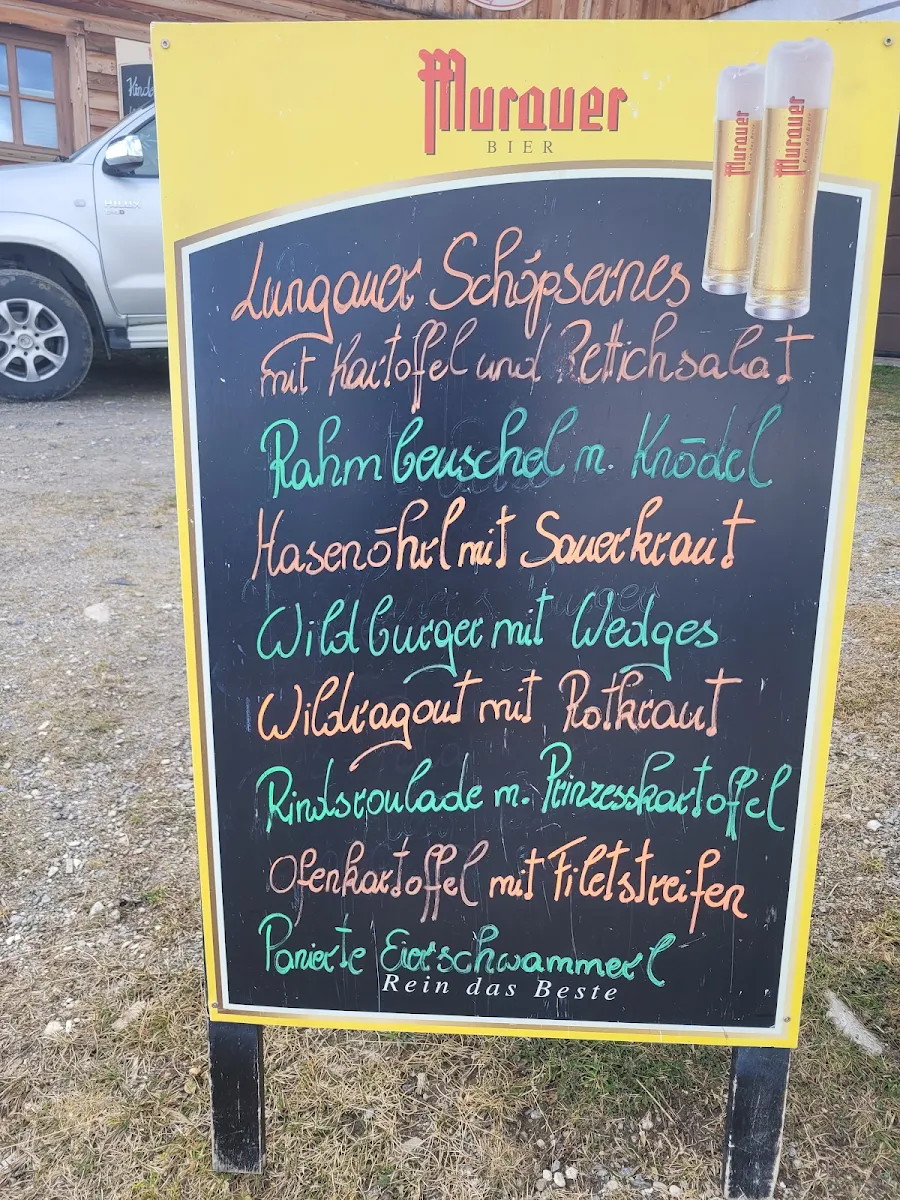 Kinde
Murauer
BIER
Murauer
Murauer
HILUX
Lungauer Schöpsernes
mit Kartoffel und Rettichsalat
Rahmbeuschel m. Knödel
Hasenöhrl mit Sauerkraut
Wildburger mit Wedges
Wildragout mit Rotkraut
Rindsroulade m. Prinzesskartoffel
Ofenkartoffel mit Filetstreifen
Panierte Eierschwammerl
Rein das Beste